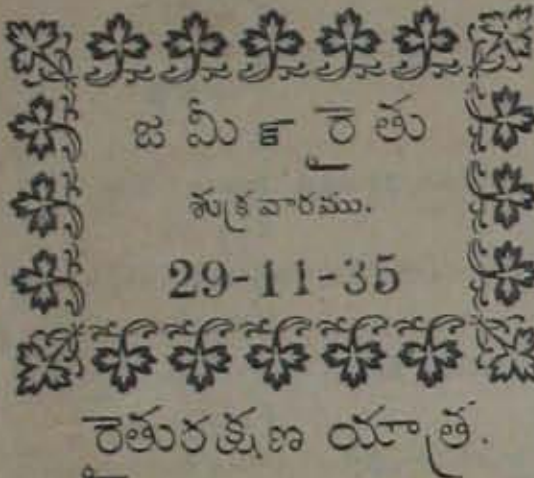 జమీన్ రైతు
శుక్రవారము.
29-11-35
రైతురక్షణ యాత్ర.